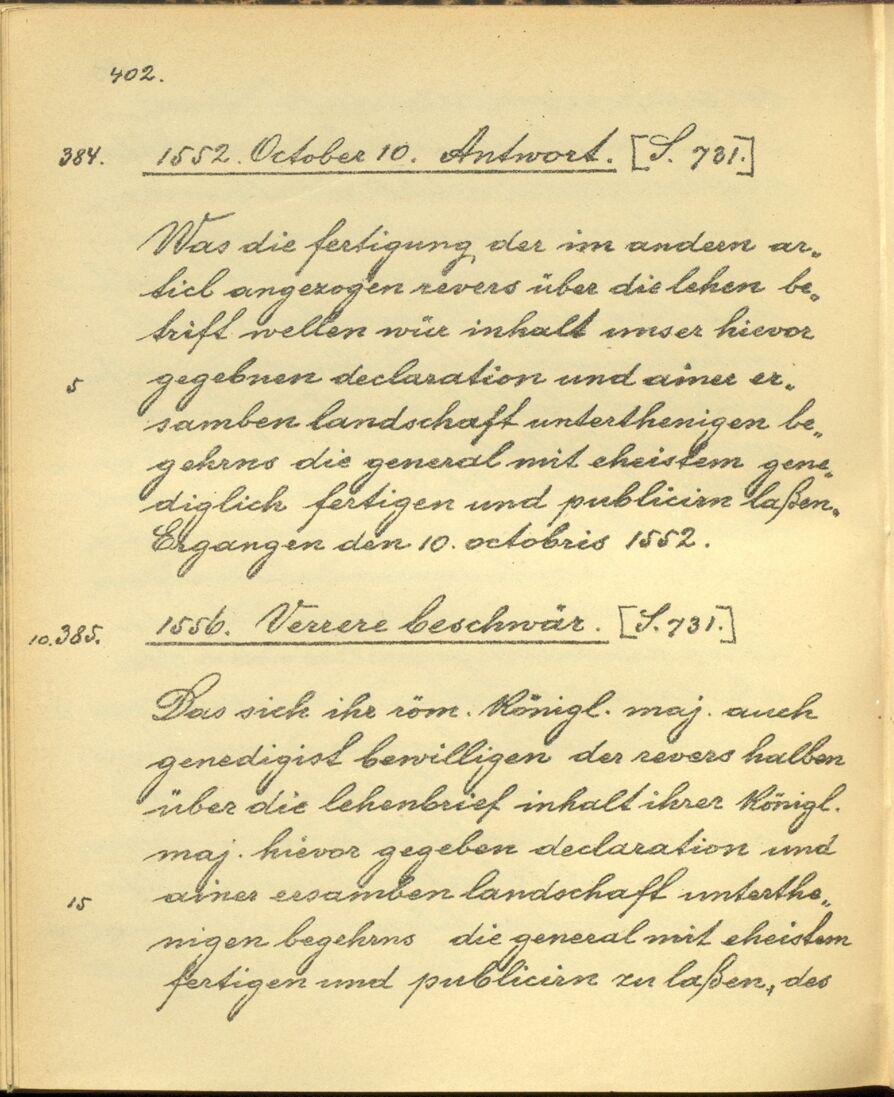 402.
384. 1552. October 10. Antwort. [S. 731.]
Was die fertigung der im andern ar„
ticl angezogen revers über die lehen be„
trift wellen wür inhalt unser hievor
5 gegebnen declaration und ainer er„
samben landschaft unterthenigen be„
gehrns die general mit eheistem gene„
diglich fertigen und publicirn laßen.
Ergangen den 10. octobris 1552.
10. 385. 1556. Verrere beschwär. [S. 731.]
Das sich ihr röm. Königl. maj. auch
genedigist bewilligen der revers halben
über die lehenbrief inhalt ihrer Königl.
maj. hievor gegeben declaration und
15 ainer ersamben landschaft unterthe„
nigen begehrns die general mit eheistem
fertigen und publicirn zu laßen, des